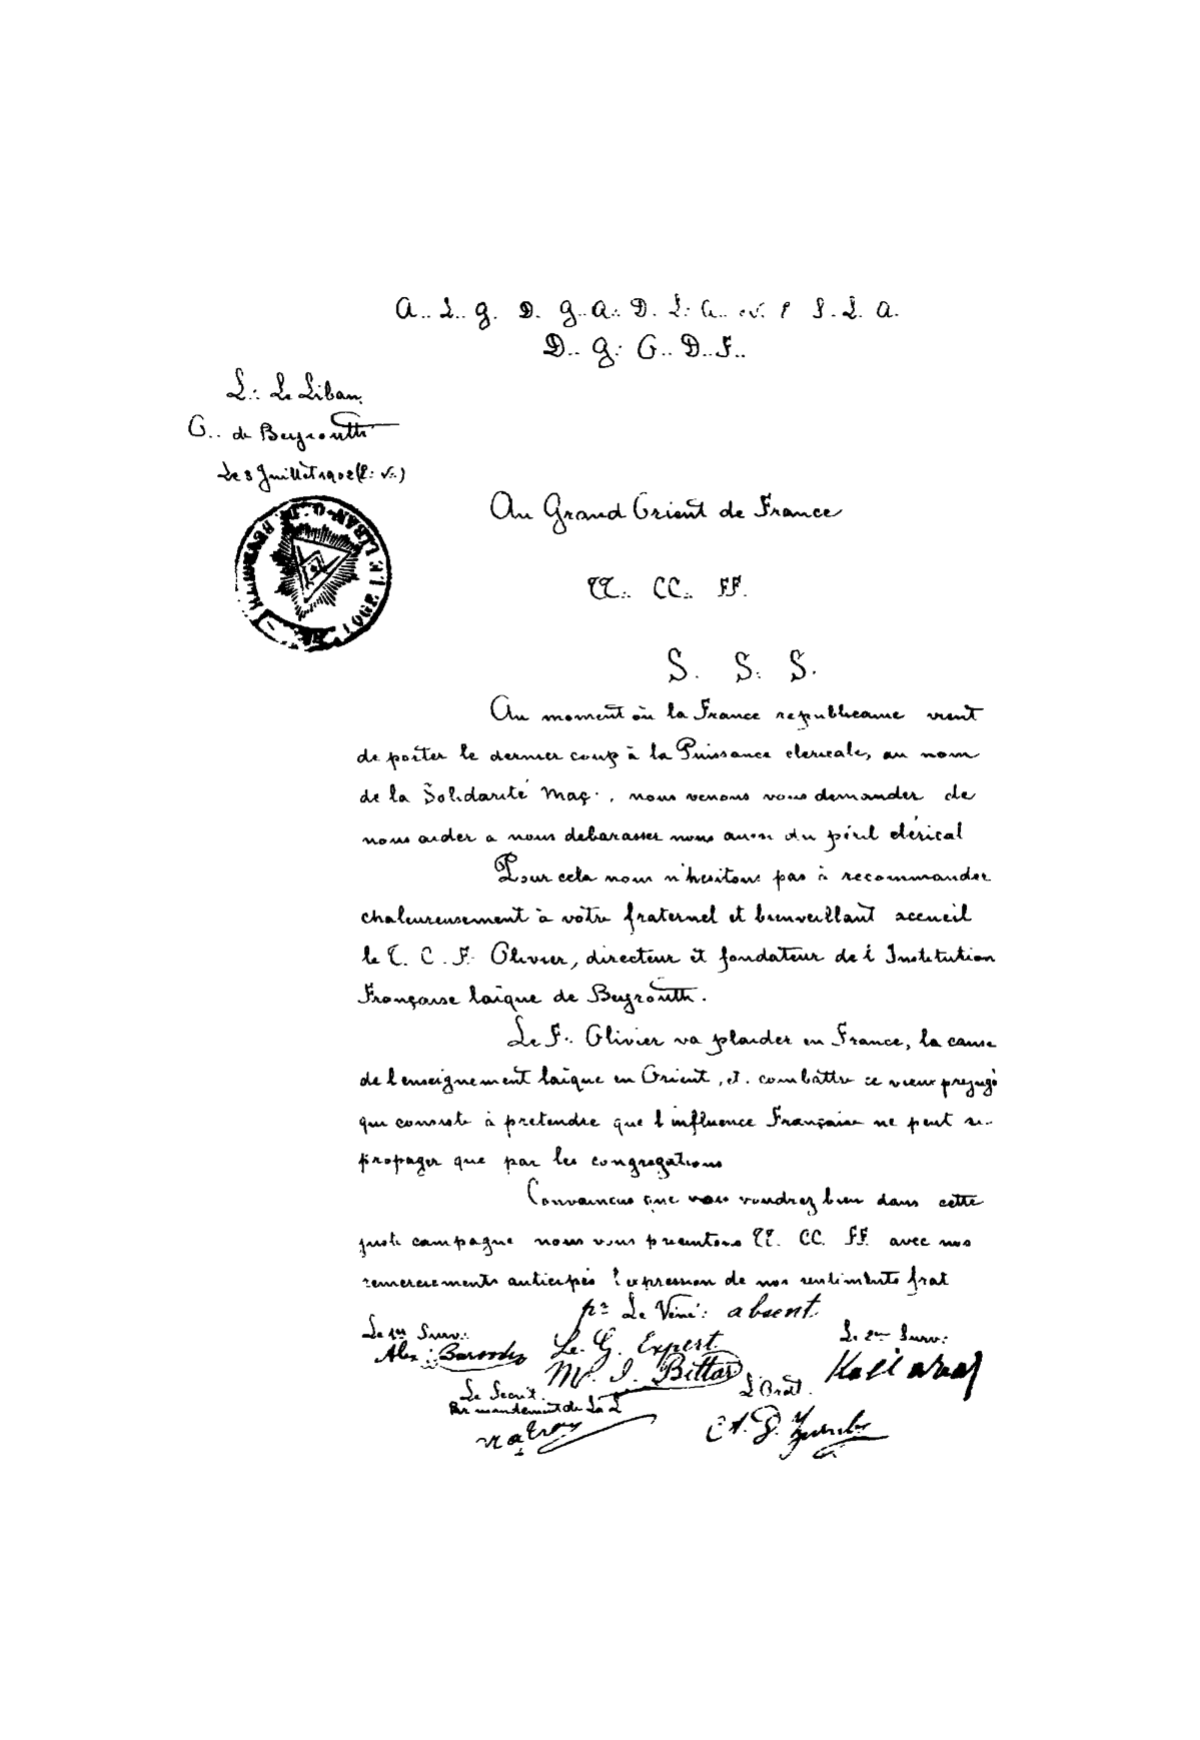 A.. L.. G. D. G.. A.. D. L.. A.. S. L. A.
D.. G.. O.. D.. F..
L.. Le Liban
O.. de Beyrouth
Le 8 Juillet 1902 (E.. V..)
LOGE LE LIBAN - O. DE BEYROUTH
Au Grand Orient de France
TT.. CC.. FF.
S. S. S.
Au moment où la France republicaine vient
de porter le dernier coup à la Puissance clericale, au nom
de la Solidarité Maç.., nous venons vous demander de
nous aider a nous debarasser nous aussi du péril clérical
Pour cela nous n'hesitons pas à recommander
chaleureusement à votre fraternel et bienveillant accueil
le T. C. F. Olivier, directeur et fondateur de l'Institution
Française laïque de Beyrouth.
Le F.. Olivier va plaider en France, la cause
de l'enseignement laïque en Orient, et combattre ce vieux prejugé
qui consiste à pretendre que l'influence Française ne peut se
propager que par les congregations
Convaincus que vous voudrez bien dans cette
juste campagne nous vous presentons TT. CC. FF. avec nos
remerciements anticipés l'expression de nos sentiments frat
pr Le Véné.. absent.
Le 1er Surv.. Le G. Expert Le 2me Surv..
Alex M. I. Bittar
Le Secrét. L'Orat.
Par mandement de La L